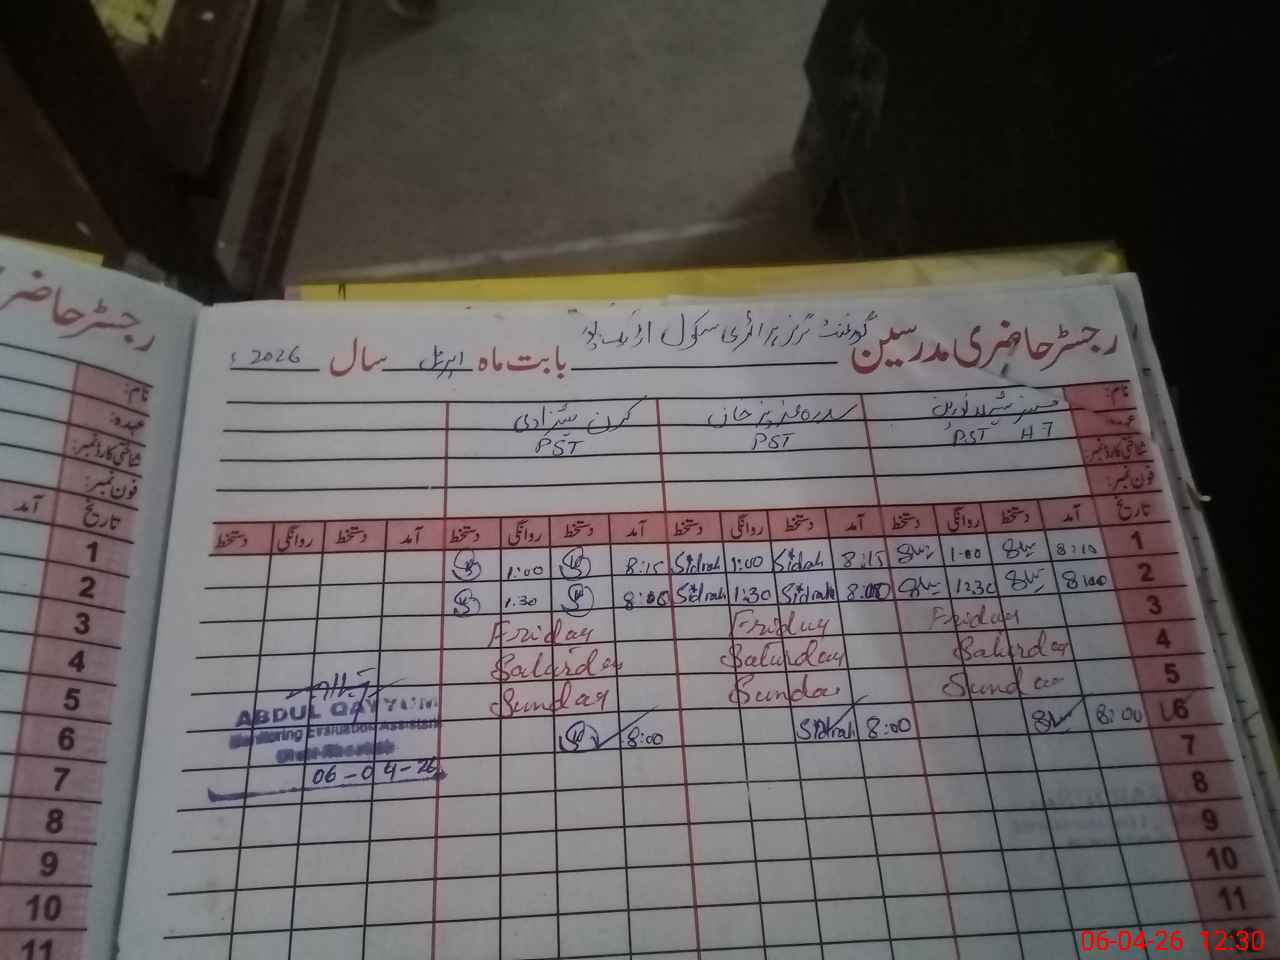 رجسٹر حاضر
رجسٹر حاضری مدرسین گورنمنٹ گرلز پرائمری سکول بابت ماہ اپریل سال 2026ء
نام:
عہدہ:
شناختی کارڈ نمبر:
فون نمبر:
تاریخ آمد
1
2
3
4
5
6
7
8
9
10
11
نام: سدرہ عزیز خان کرن شہزادی
PST HT PST PST
شناختی کارڈ نمبر:
فون نمبر:
تاریخ آمد دستخط روانگی دستخط آمد دستخط روانگی دستخط آمد دستخط روانگی دستخط آمد دستخط روانگی دستخط
1 8:10 1:00 8:15 Sidrah 1:00 Sidrah 8:15 1:00
2 8:00 12:30 8:00 Sidrah 1:30 Sidrah 8:00 1:30
3 Friday Friday Friday
4 Saturday Saturday Saturday
5 Sunday Sunday Sunday
6 8:00 8:00 Sidrah 8:00
7
8
9
10
11
ABDUL QAYYUM
Monitoring Evaluation Assistant
06-04-26
06-04-26 12:30